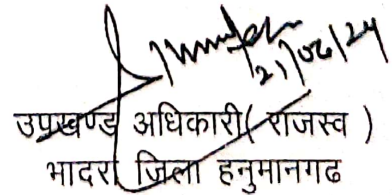 21/06/24
उपखण्ड अधिकारी( राजस्व )
भादरा जिला हनुमानगढ